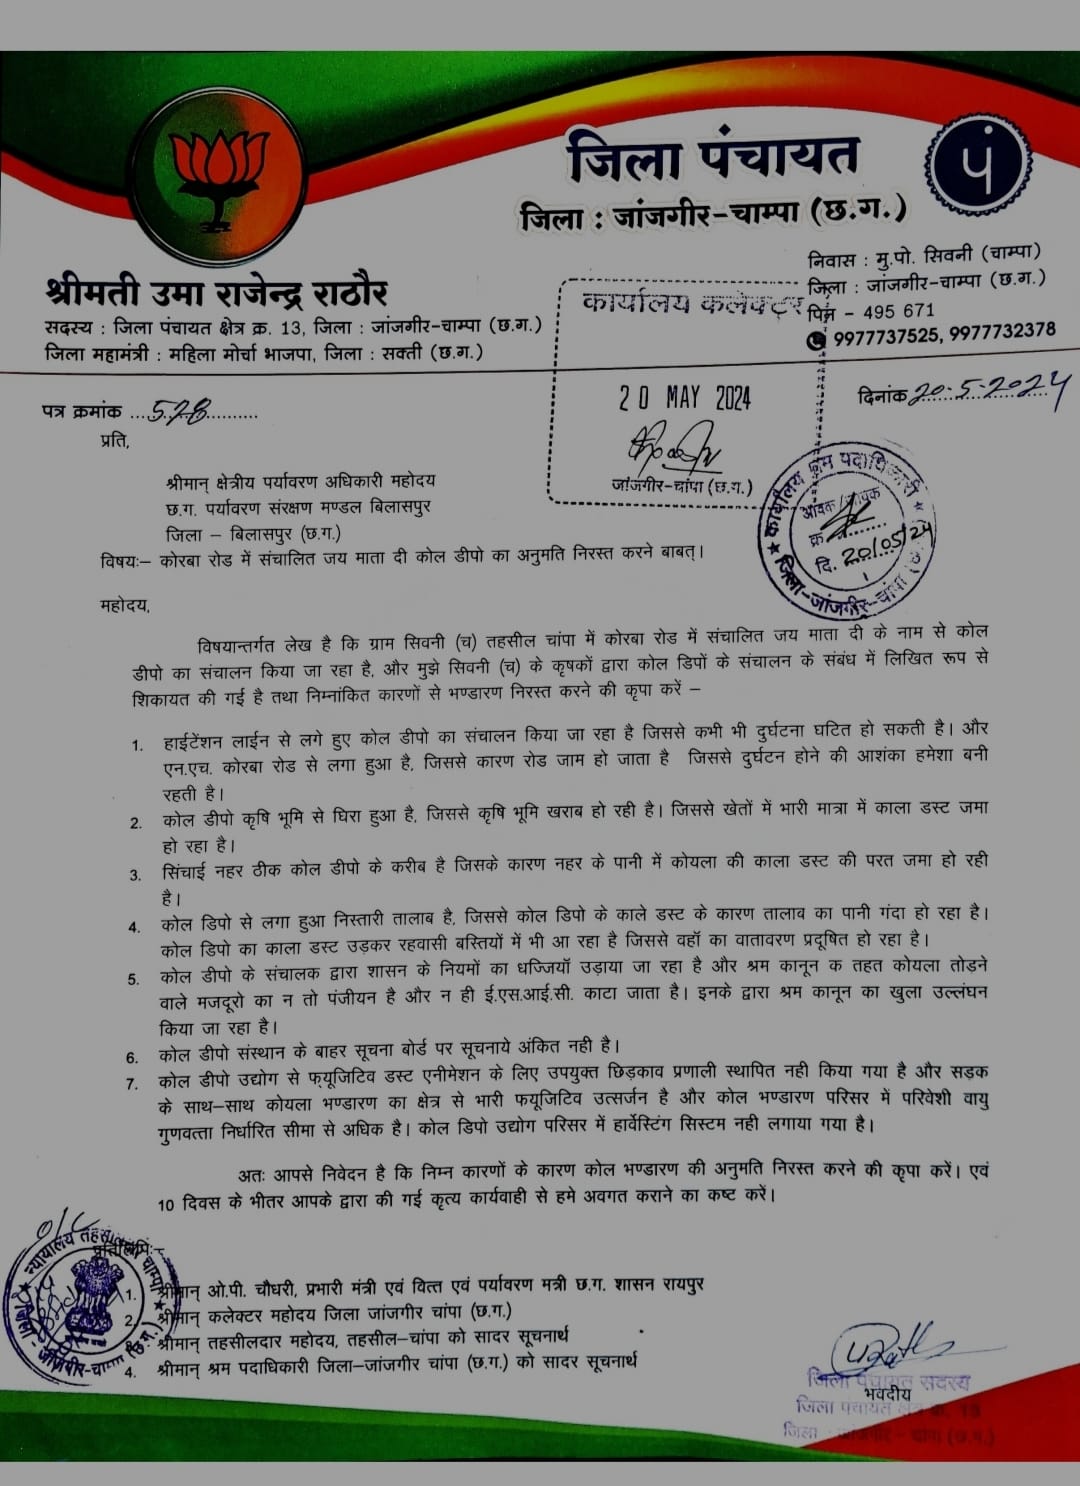 जिला पंचायत
पं
जिला : जांजगीर-चाम्पा (छ.ग.)
श्रीमती उमा राजेन्द्र राठौर
सदस्य : जिला पंचायत क्षेत्र क्र. 13, जिला : जांजगीर-चाम्पा (छ.ग.)
जिला महामंत्री : महिला मोर्चा भाजपा, जिला : सक्ती (छ.ग.)
निवास : मु.पो. सिवनी (चाम्पा)
जिला : जांजगीर-चाम्पा (छ.ग.)
पिन - 495 671
9977737525, 9977732378
कार्यालय कलेक्टर
20 MAY 2024
जांजगीर-चांपा (छ.ग.)
पत्र क्रमांक ...528..........
दिनांक 20-5-2024
कार्यालय श्रम पदाधिकारी
आवक/जावक
क्र
दि. 20/05/24
जिला-जांजगीर-चांपा (छ.
प्रति,
श्रीमान् क्षेत्रीय पर्यावरण अधिकारी महोदय
छ.ग. पर्यावरण संरक्षण मण्डल बिलासपुर
जिला – बिलासपुर (छ.ग.)
विषयः– कोरबा रोड में संचालित जय माता दी कोल डीपो का अनुमति निरस्त करने बाबत्।
महोदय,
विषयान्तर्गत लेख है कि ग्राम सिवनी (च) तहसील चांपा में कोरबा रोड में संचालित जय माता दी के नाम से कोल
डीपो का संचालन किया जा रहा है, और मुझे सिवनी (च) के कृषकों द्वारा कोल डिपों के संचालन के संबंध में लिखित रूप से
शिकायत की गई है तथा निम्नांकित कारणों से भण्डारण निरस्त करने की कृपा करें –
1. हाईटेंशन लाईन से लगे हुए कोल डीपो का संचालन किया जा रहा है जिससे कभी भी दुर्घटना घटित हो सकती है। और
एन.एच. कोरबा रोड से लगा हुआ है, जिससे कारण रोड जाम हो जाता है जिससे दुर्घटन होने की आशंका हमेशा बनी
रहती है।
2. कोल डीपो कृषि भूमि से घिरा हुआ है, जिससे कृषि भूमि खराब हो रही है। जिससे खेतों में भारी मात्रा में काला डस्ट जमा
हो रहा है।
3. सिंचाई नहर ठीक कोल डीपो के करीब है जिसके कारण नहर के पानी में कोयला की काला डस्ट की परत जमा हो रही
है।
4. कोल डिपो से लगा हुआ निस्तारी तालाब है, जिससे कोल डिपो के काले डस्ट के कारण तालाव का पानी गंदा हो रहा है।
कोल डिपो का काला डस्ट उड़कर रहवासी बस्तियों में भी आ रहा है जिससे वहॉ का वातावरण प्रदूषित हो रहा है।
5. कोल डीपो के संचालक द्वारा शासन के नियमों का धज्जियॉ उड़ाया जा रहा है और श्रम कानून क तहत कोयला तोड़ने
वाले मजदूरो का न तो पंजीयन है और न ही ई.एस.आई.सी. काटा जाता है। इनके द्वारा श्रम कानून का खुला उल्लंघन
किया जा रहा है।
6. कोल डीपो संस्थान के बाहर सूचना बोर्ड पर सूचनाये अंकित नही है।
7. कोल डीपो उद्योग से फ्यूजिटिव डस्ट एनीमेशन के लिए उपयुक्त छिड़काव प्रणाली स्थापित नही किया गया है और सड़क
के साथ–साथ कोयला भण्डारण का क्षेत्र से भारी फयूजिटिव उत्सर्जन है और कोल भण्डारण परिसर में परिवेशी वायु
गुणवत्ता निर्धारित सीमा से अधिक है। कोल डिपो उद्योग परिसर में हार्वेस्टिंग सिस्टम नही लगाया गया है।
अतः आपसे निवेदन है कि निम्न कारणों के कारण कोल भण्डारण की अनुमति निरस्त करने की कृपा करें। एवं
10 दिवस के भीतर आपके द्वारा की गई कृत्य कार्यवाही से हमे अवगत कराने का कष्ट करें।
O/C
न्यायालय तहसील
चाम्पा
जिला - जांजगीर-चाम्पा (छ.ग.)
प्रतिलिपिः–
1. श्रीमान् ओ.पी. चौधरी, प्रभारी मंत्री एवं वित्त एवं पर्यावरण मत्री छ.ग. शासन रायपुर
2. श्रीमान् कलेक्टर महोदय जिला जांजगीर चांपा (छ.ग.)
3. श्रीमान् तहसीलदार महोदय, तहसील–चांपा को सादर सूचनार्थ
4. श्रीमान् श्रम पदाधिकारी जिला–जांजगीर चांपा (छ.ग.) को सादर सूचनार्थ
जिला पंचायत सदस्य
भवदीय
जिला पंचायत क्षेत्र क्र. 13
जिला : जांजगीर - चांपा (छ.ग.)